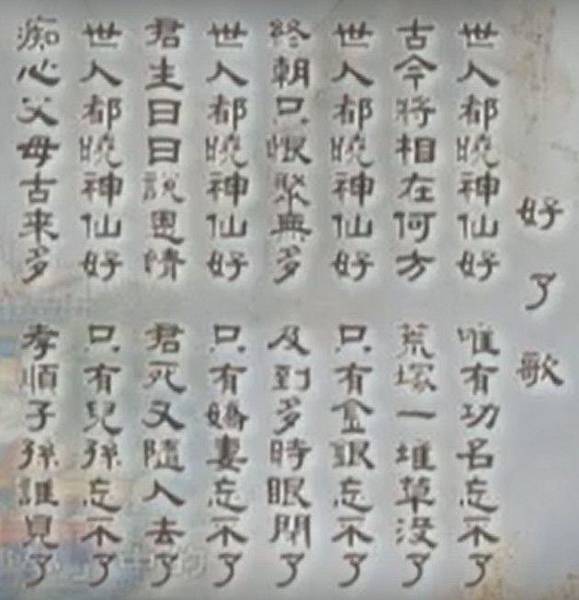 好了歌
世人都曉神仙好 唯有功名忘不了
古今將相在何方 荒塚一堆草沒了
世人都曉神仙好 只有金銀忘不了
終朝只恨聚無多 及到多時眼閉了
世人都曉神仙好 只有嬌妻忘不了
君主日日說恩情 君死又隨人去了
世人都曉神仙好 只有兒孫忘不了
痴心父母古來多 孝順子孫誰見了